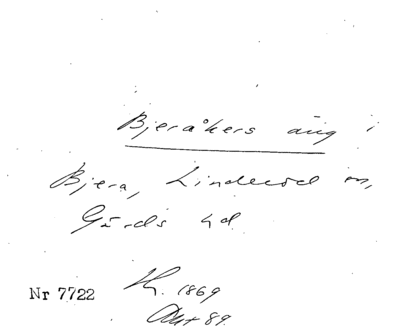 Bjeråkers äng i
Bjera, Linderöd sn,
Gärds hd.
Nr 7722
1869
Akt 89.